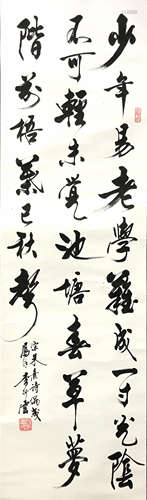 少年易老學難成一寸光陰
不可輕未覺池塘春草夢
階前梧葉已秋聲
宋朱熹詩